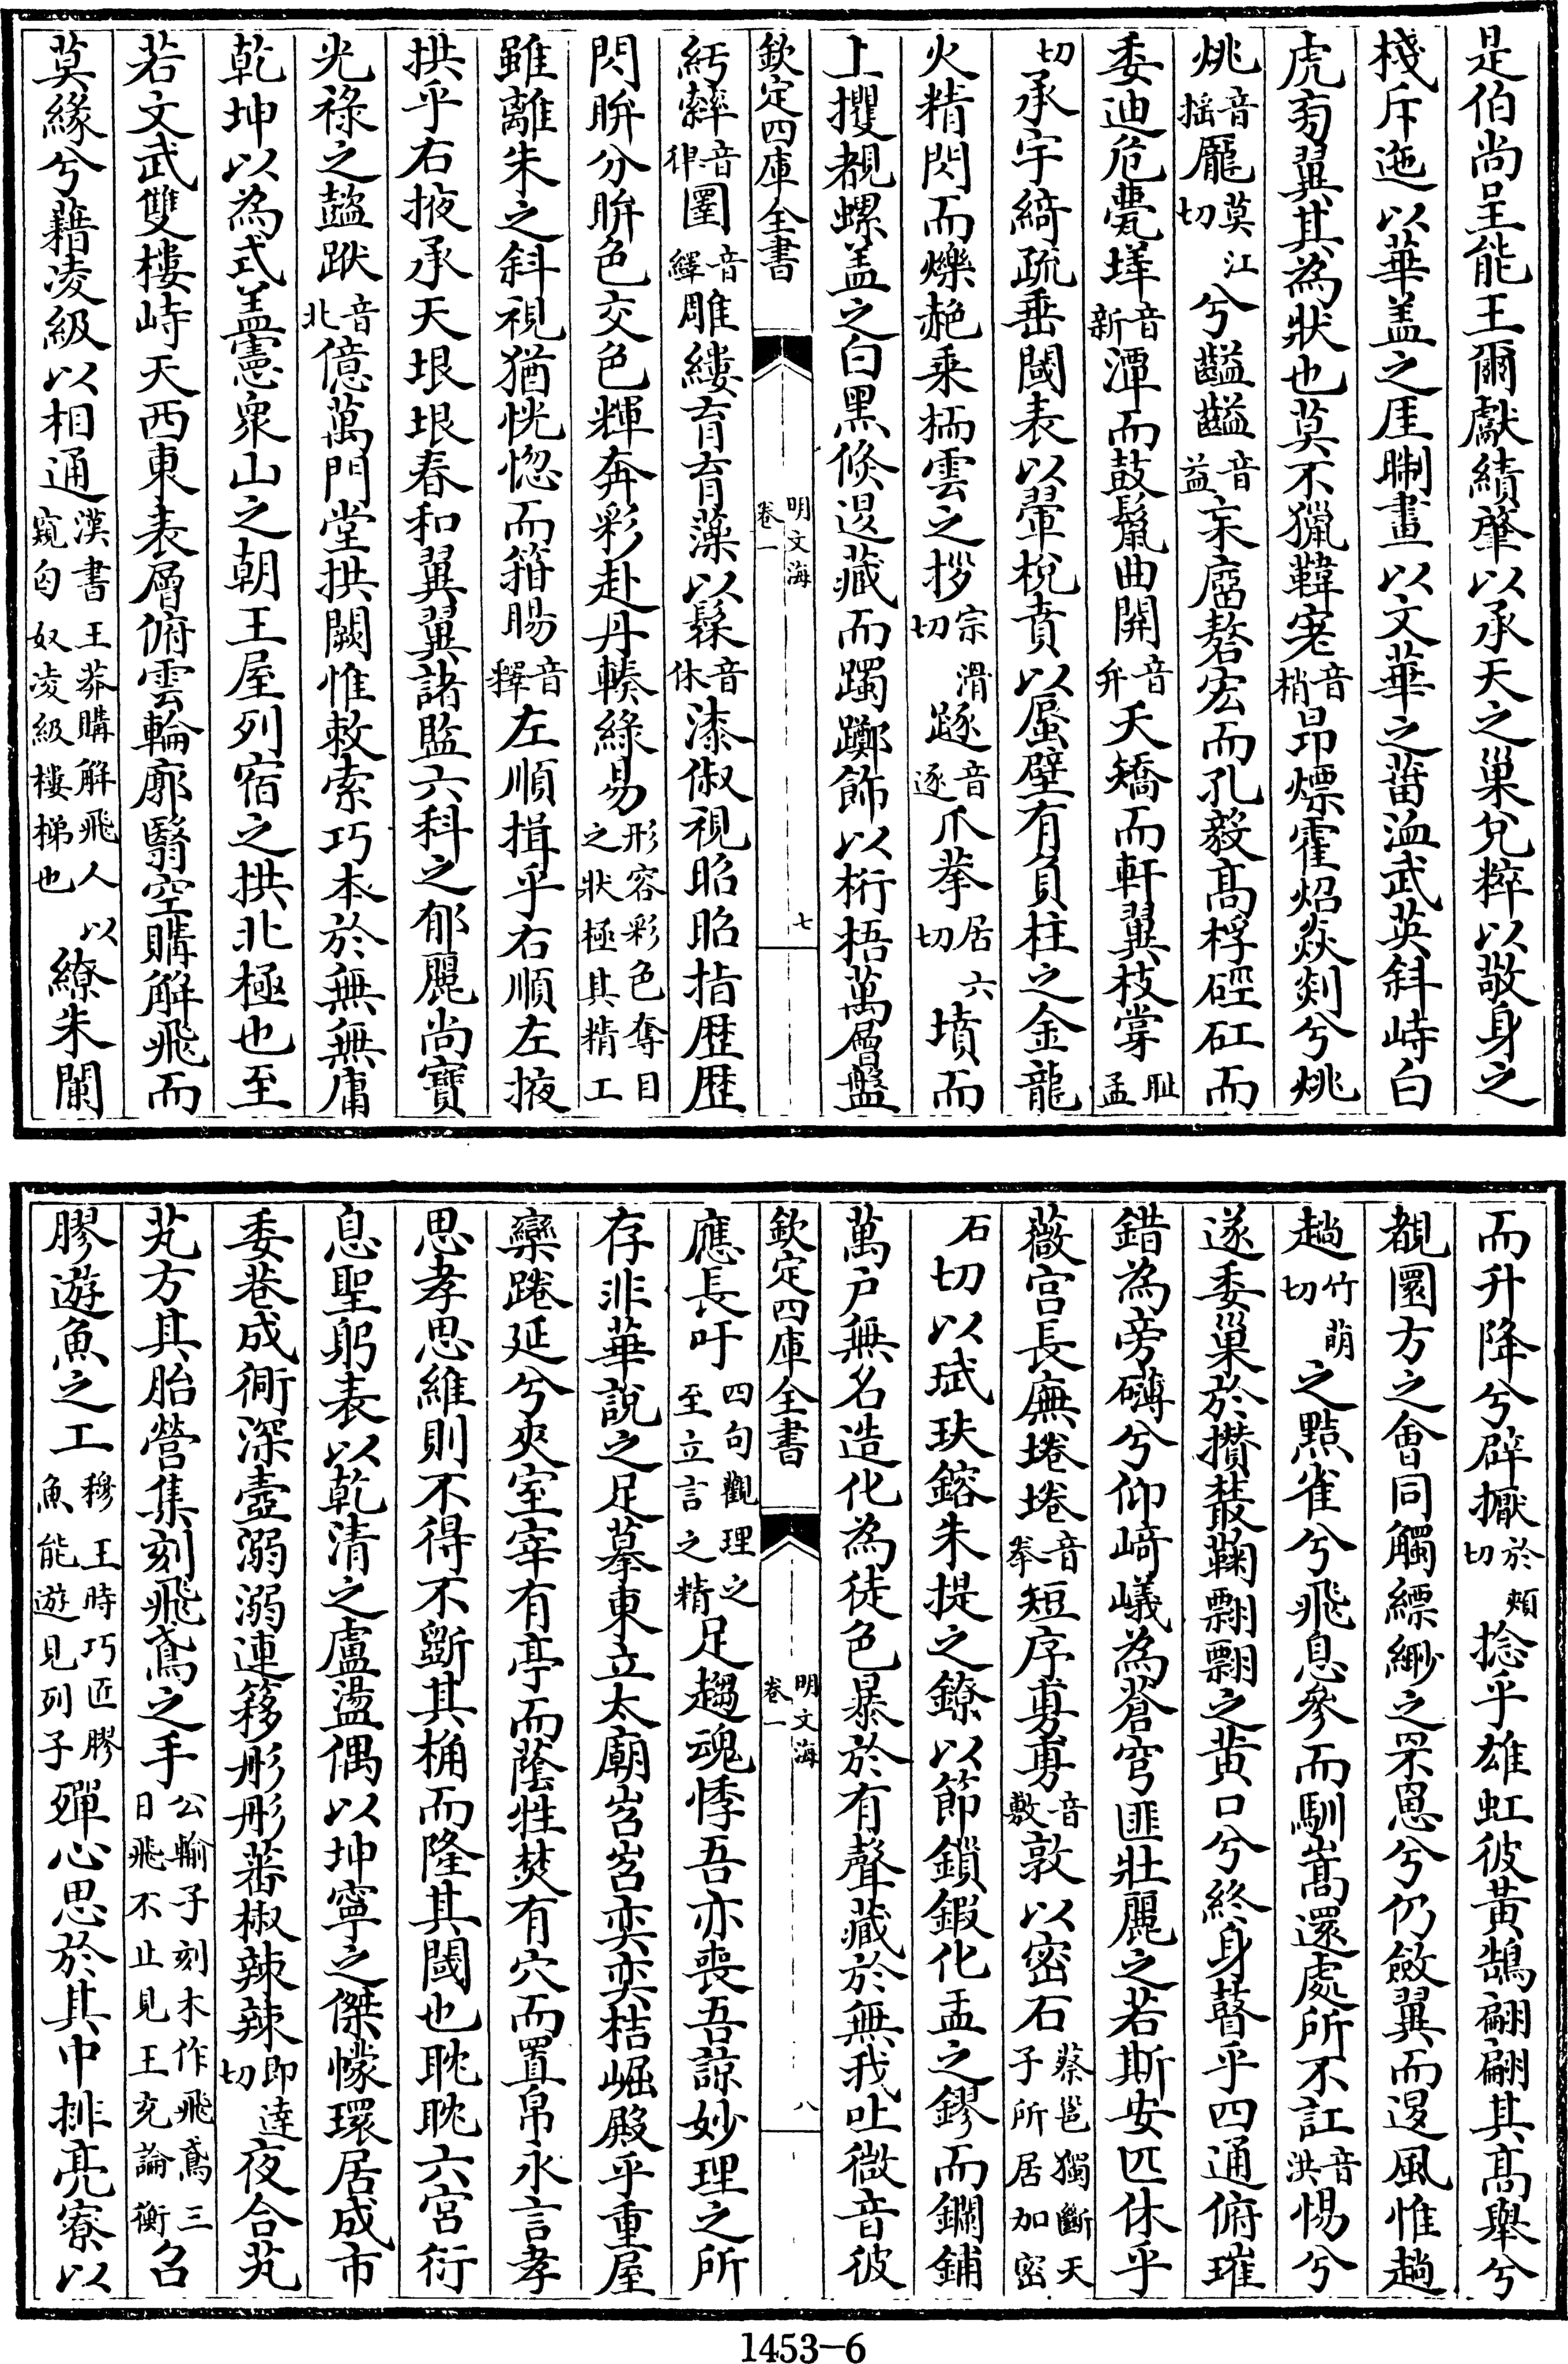 是伯尚呈能王爾獻績肇以承天之巢兌粹以敬身之
棧斥迤以華盖之厓䦨畫以文華之菑洫武英斜峙白
虎旁翼其為狀也莫不獵韡宼音梢昂熛霍炤焱剡兮烑
烑音揺厖莫江切兮齸齸音益宋㢈磝宏而孔毅髙桴硜矼而
委迪危甍垟音新潭而鼓鬣曲開音弁夭矯而軒翼枝牚耻孟
切承宇綺疏垂閾表以翬棁賁以蜃壁有負柱之金龍
火精閃而爍赩乗檽雲之拶宗滑切䠱音逐爪拲居六切墳而
上攫覩螺盖之白黑倐逞藏而躅躑飾以桁梧萬層盤
紆䌦音律圛音繹雕縷育育藻以髹音休漆俶視昭昭指歴歴
閃眸分眸色交色輝奔彩赴丹轃綠易形容彩色奪目之狀極其精工
雖離朱之斜視猶恍惚而䇬䁑音釋左順揖乎右順左掖
拱乎右掖承天垠垠春和翼翼諸監六科之郁麗尚寶
光祿之䪡䟦音北億萬門堂拱闕惟敕索巧本於無無庸
乾坤以為式盖憲衆山之朝王屋列宿之拱北極也至
若文武雙樓峙天西東表層俯雲輪廓翳空購解飛而
莫緣兮藉凌級以相通漢書王莽購解飛人以窺匈奴凌級樓梯也繚朱闌
而升降兮辟擫於頰切捻乎雄虹彼黃鵠翩翩其髙舉兮
覩圜方之會同觸縹緲之罘罳兮仍斂翼而逞風惟趟
趟竹萌切之㸃雀兮飛息參而馴嵩還處所不訌音洪惕兮
遂委巢於攅叢鞠翾翾之黃口兮終身瞽乎四通俯璀
錯為旁礴兮仰﨑嶬為蒼穹匪壯麗之若斯安匹休乎
薇宫長廡埢埢音拳短序旉旉音敷敦以密石蔡邕獨斷天子所居加密
石切以珷玞鎔朱提之鐐以節鎖鍜化盂之鏐而鐦鋪
萬戸無名造化為徒色暴於有聲藏於無我吐微音彼
應長吁四句觀理之至立言之精足趨魂悸吾亦喪吾諒妙理之所
存非華說之足摹東立太廟岧岧奕奕桔崛殿乎重屋
欒踡延兮夾室宰有亭而蔭牲焚有穴而置帛永言孝
思孝思維則不得不斵其桷而隆其閾也耽耽六宮衍
息聖躬表以乾清之盧溋偶以坤寧之傑幪環居成市
委巷成衕深壼溺溺連簃彤彤蕃椒辣辣即逹切夜合芃
芃方其胎營集刻飛鳶之手公輸子刻木作飛鳶三日飛不止見王充論衡召
膠遊魚之工穆王時巧匠膠魚能遊見列子殫心思於其中排亮寮以
欽定四庫全書
明文海
卷一
七
欽定四庫全書
明文海
卷一
八
1453-6